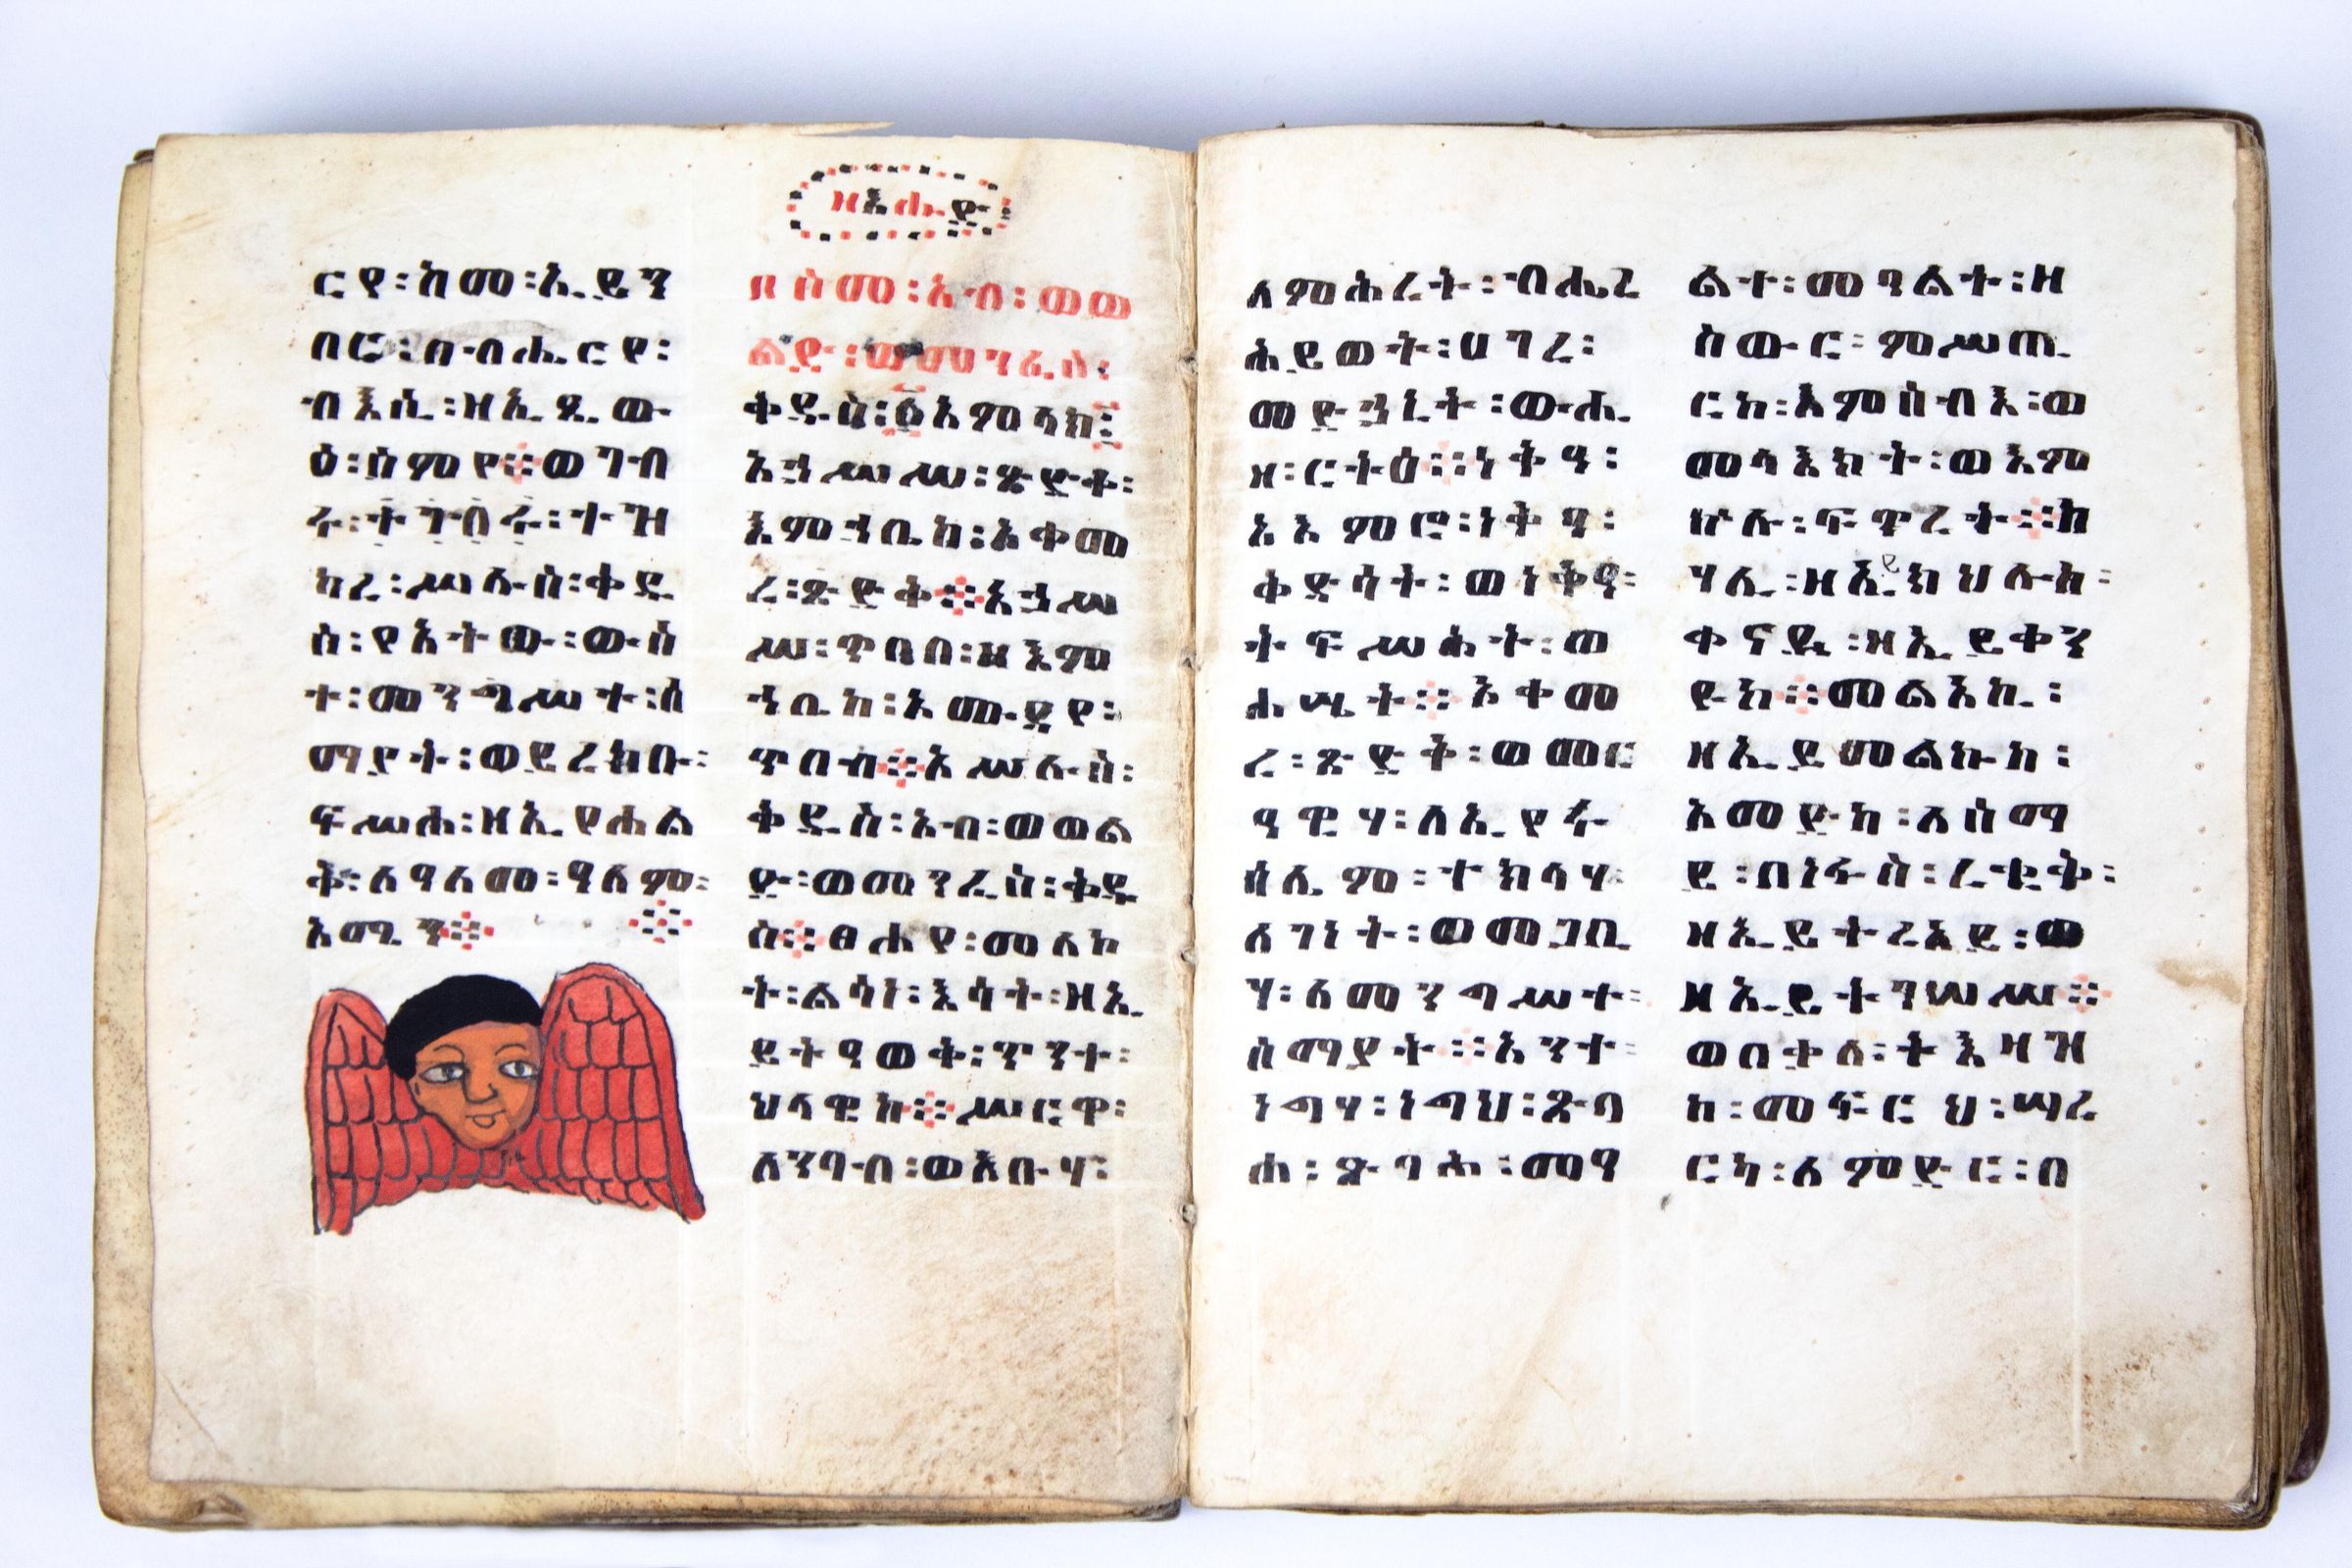 ርየ፡ከመ፡ኢይን
በር፡በብሒርየ፡
ብእሲ፡ዘኢጼው
ዕ፡ስምየ፨ወግብ
ሩ፡ተግበሩ፡ተዝ
ካረ፡ሥሉስ፡ቀዱ
ስ፡የአትው፡ውስ
ተ፡መንግሥተ፡ሰ
ማያት፡ወይረክቡ፡
ፍሥሐ፡ዘኢየሐል
ቅ፡ለዓለመ፡ዓለም፡
አሜን፨ ፨
ዘእሑድ
በስመ፡አብ፡ወወ
ልድ፡ወመንፈስ፡
ቅዱስ፡፩አምላክ፡
አኃሥሥ፡ጽድቀ፡
እምኀቤከ፡አቀመ
ረ፡ጽድቅ፨አኃሥ
ሥ፡ጥበበ፡ዘእም
ኀቤከ፡አመድየ፡
ጥበብ፨አሥሉስ፡
ቅዱስ፡አብ፡ወወል
ድ፡ወመንፈስ፡ቅዱ
ስ፨ፀሐየ፡መለኮ
ት፡ልሳነ፡እሳት፡ዘኢ
ይትዓወቅ፡ጥንተ፡
ህላዌከ፨ሥርዋ፡
ለንባብ፡ወአቡሃ፡
ለምሕረት፡ብሒረ
ሕይወት፡ሀገረ፡
መድኃኒት፡ውሒ
ዘ፡ርትዕ፨ነቅዓ፡
አእምሮ፡ነቅዓ፡
ቅድሳት፡ወነቅዓ፡
ትፍሥሕት፡ወ
ሐሤት፨አቀመ
ረ፡ጽድቅ፡ወመር
ዓዊሃ፡ለኢየሩ
ሳሌም፡ተክላሃ፡
ለገነት፡ወመጋቢ
ሃ፡ለመንግሥተ፡
ሰማያት፨አንተ፡
ነግሃ፡ነግህ፡ጽባ
ሐ፡ጽባሕ፡መዓ
ልተ፡መዓልት፡ዘ
ስውር፡ምሥጢ
ርከ፡እምሰብእ፡ወ
መላእክት፡ወእም
ኵሉ፡ፍጥረት፨ከ
ሃሊ፡ዘኢይክህሉከ፡
ቀናዪ፡ዘኢይቀን
ዩከ፨መልእኪ፡
ዘኢይመልኩከ፡
አመድከ፡ለሰማ
ይ፡በነፋስ፡ረቂቅ፡
ዘኢይትረአይ፡ወ
ዘኢይትገሠሥ፨
ወበቃለ፡ትእዛዝ
ከ፡መፍርህ፡ሣረ
ርካ፡ለምድር፡በ